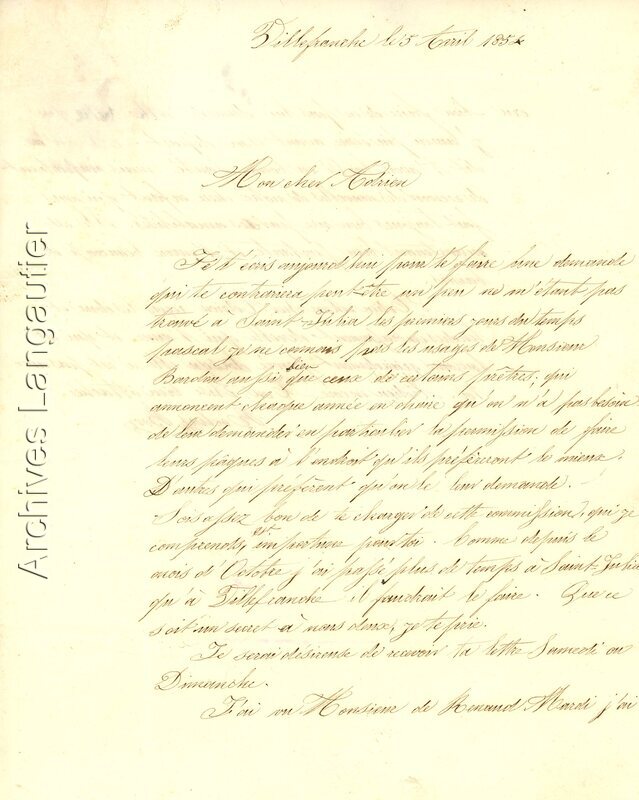 Villefranche le 5 Avril 1854
Mon cher Adrien
Je t'écris aujourd'hui pour te faire une demande
qui te contrariera peut-être un peu ne m'étant pas
trouvé à Saint-Julia les premiers jours du temps
pascal je ne connais pas les usages de Monsieur
Bardou aussi bien que ceux de certains prêtres, qui
annoncent chaque année en chaire qu'on n'a pas besoin
de leur demander en particulier la permission de faire
leurs pâques à l'endroit qu'ils préfèreront le mieux.
D'autres qui préfèrent qu'on le leur demande.
Sois assez bon de te charger de cette commission, qui je
comprends, est importune pour toi. Comme depuis le
mois d'Octobre j'ai passé plus de temps à Saint-Julia
qu'à Villefranche il faudrait le faire. Que ce
soit un secret à nous deux, je te prie.
Je serai désireuse de recevoir ta lettre Samedi ou
Dimanche.
J'ai vu Monsieur de Renaud Mardi j'ai
Archives Langautier